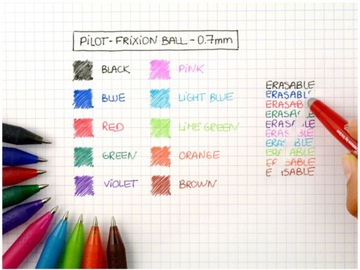 PILOT-FRIXION BALL-0.7mm
BLACK
BLUE
RED
GREEN
VIOLET
PINK
LIGHT BLUE
LIME GREEN
ORANGE
BROWN
ERASABLE
ERASABL
ERASABL
ERASA LE
ERAS BLE
ERAS BLE
ERA ABLE
ER ABLE
ER SABLE
E SABLE